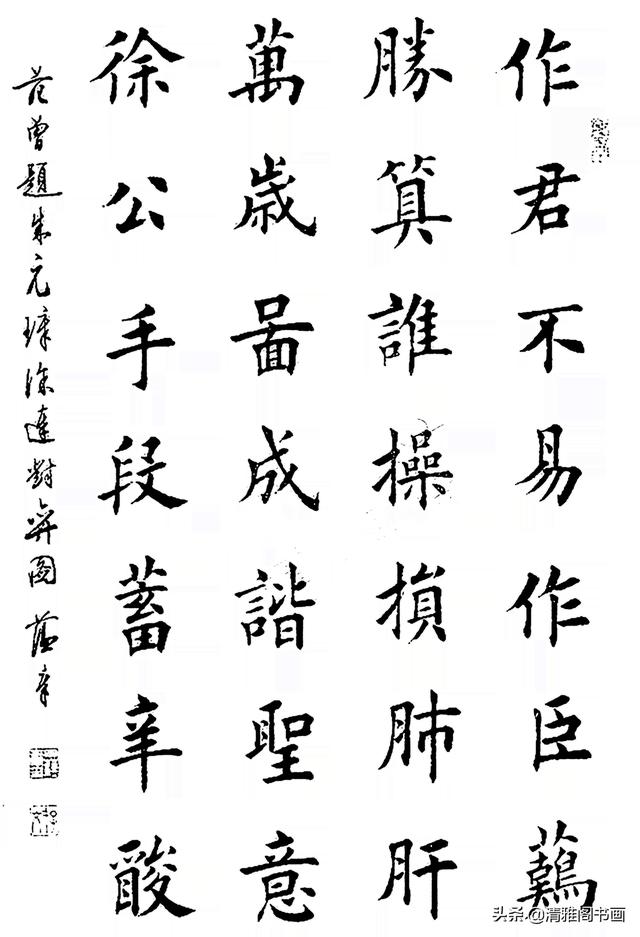 作君不易作臣難
勝算誰操損肺肝
萬歲啚成諧聖意
徐公手段蓄辛酸
范曾題朱元璋徐達對弈圖
头条 @清雅阁书画